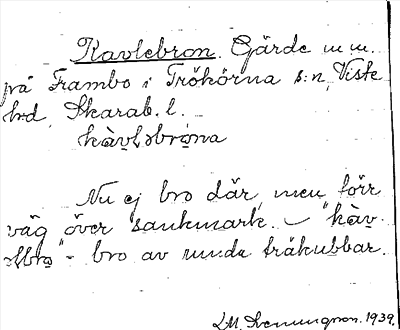 Kavlebron. Gärde m.m.
på Frambo i Trökörna s:n, Viste
hrd, Skarab. l.
kàvləbrona
Nu ej bro där, men förr
väg över sankmark. — "kàv-
bro" = bro av runda träkubbar.
1939.